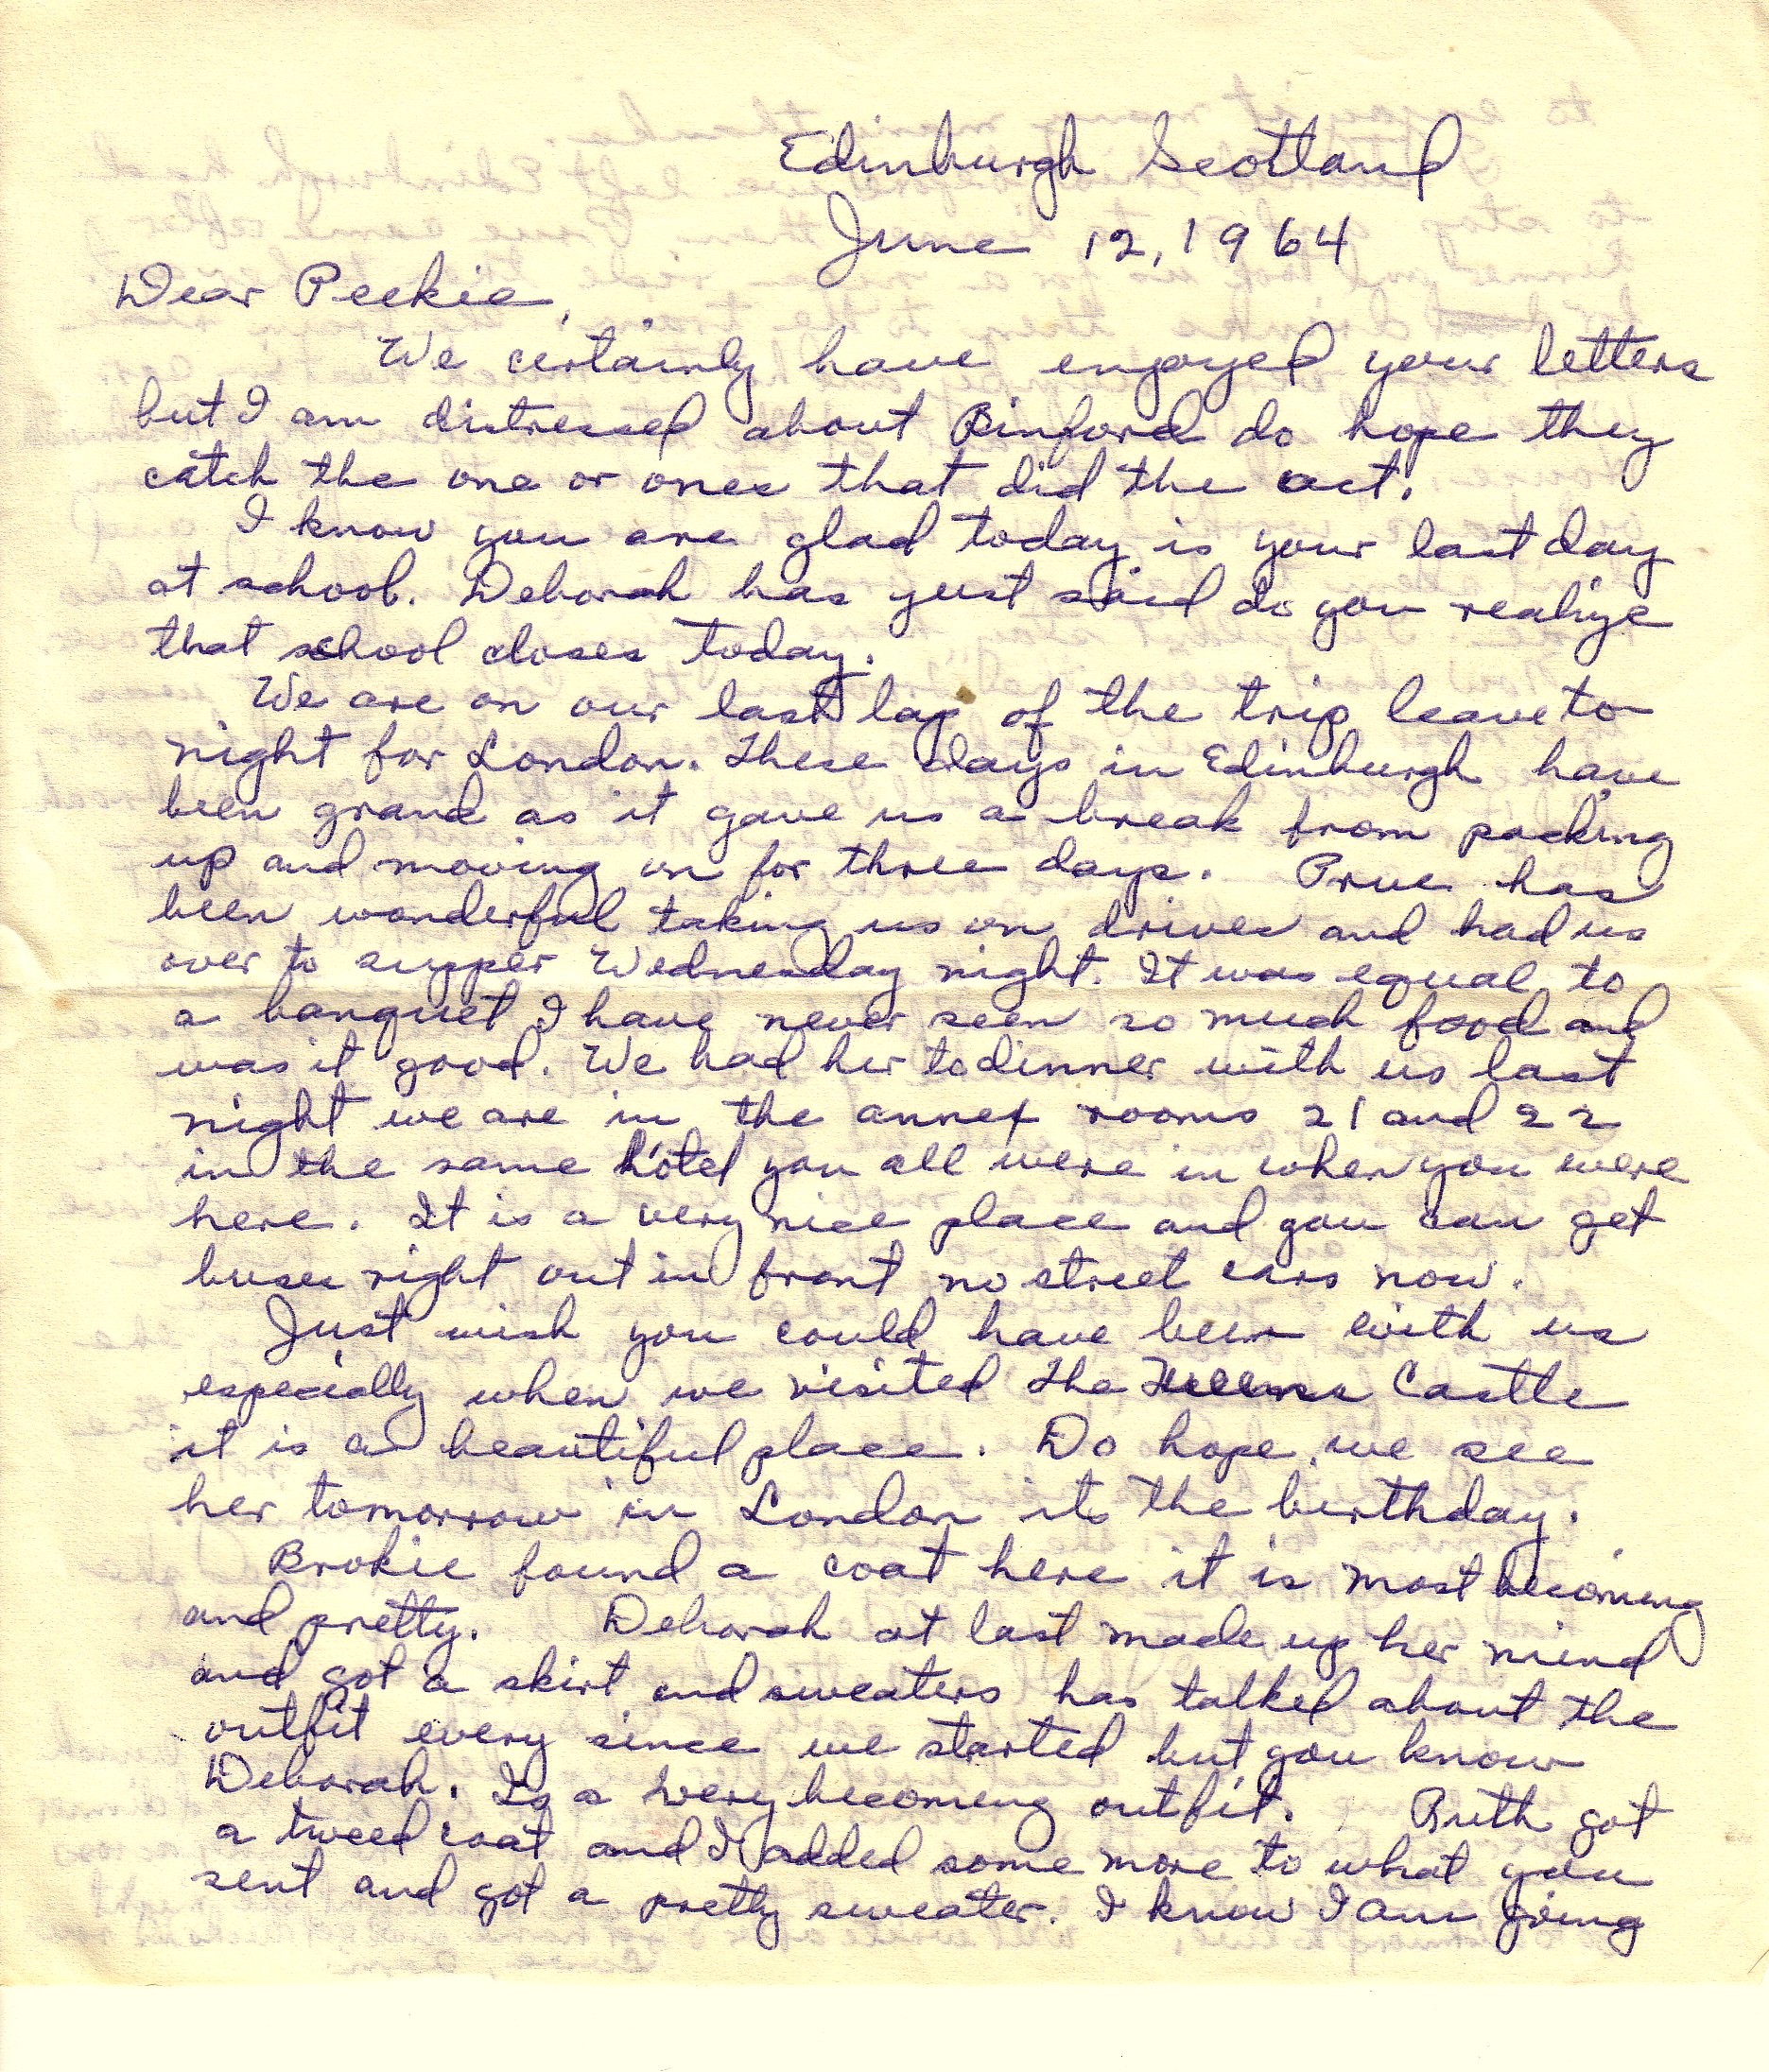 Edinburgh Scotland
June 12, 1964
Dear Peekie,
We certainly have enjoyed your letters
but I am distressed about Binford do hope they
catch the one or ones that did the act.
I know you are glad today is your last day
at school. Deborah has just said do you realize
that school closes today.
We are on our last lap of the trip leave to
night for London. These days in Edinburgh have
been grand as it gave us a break from packing
up and moving on for three days. Prue has
been wonderful taking us on drives and had us
over to supper Wednesday night. It was equal to
a banquet I have never seen so much food and
was it good. We had her to dinner with us last
night we are in the annex rooms 21 and 22
in the same hotel you all were in when you were
here. It is a very nice place and you can get
buses right out in front no street cars now.
Just wish you could have been with us
especially when we visited the Castle
it is a beautiful place. Do hope we see
her tomorrow in London its the birthday.
Brokie found a coat here it is most becoming
and pretty. Deborah at last made up her mind
and got a skirt and sweaters has talked about the
outfit every since we started but you know
Deborah. Is a very becoming outfit. Ruth got
a tweed coat and I added some more to what you
sent and got a pretty sweater. I know I am going